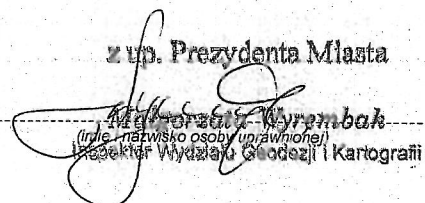 z up. Prezydenta Miasta
Małgorzata Wyrembak
(imię i nazwisko osoby uprawnionej)
Inspektor Wydziału Geodezji i Kartografii